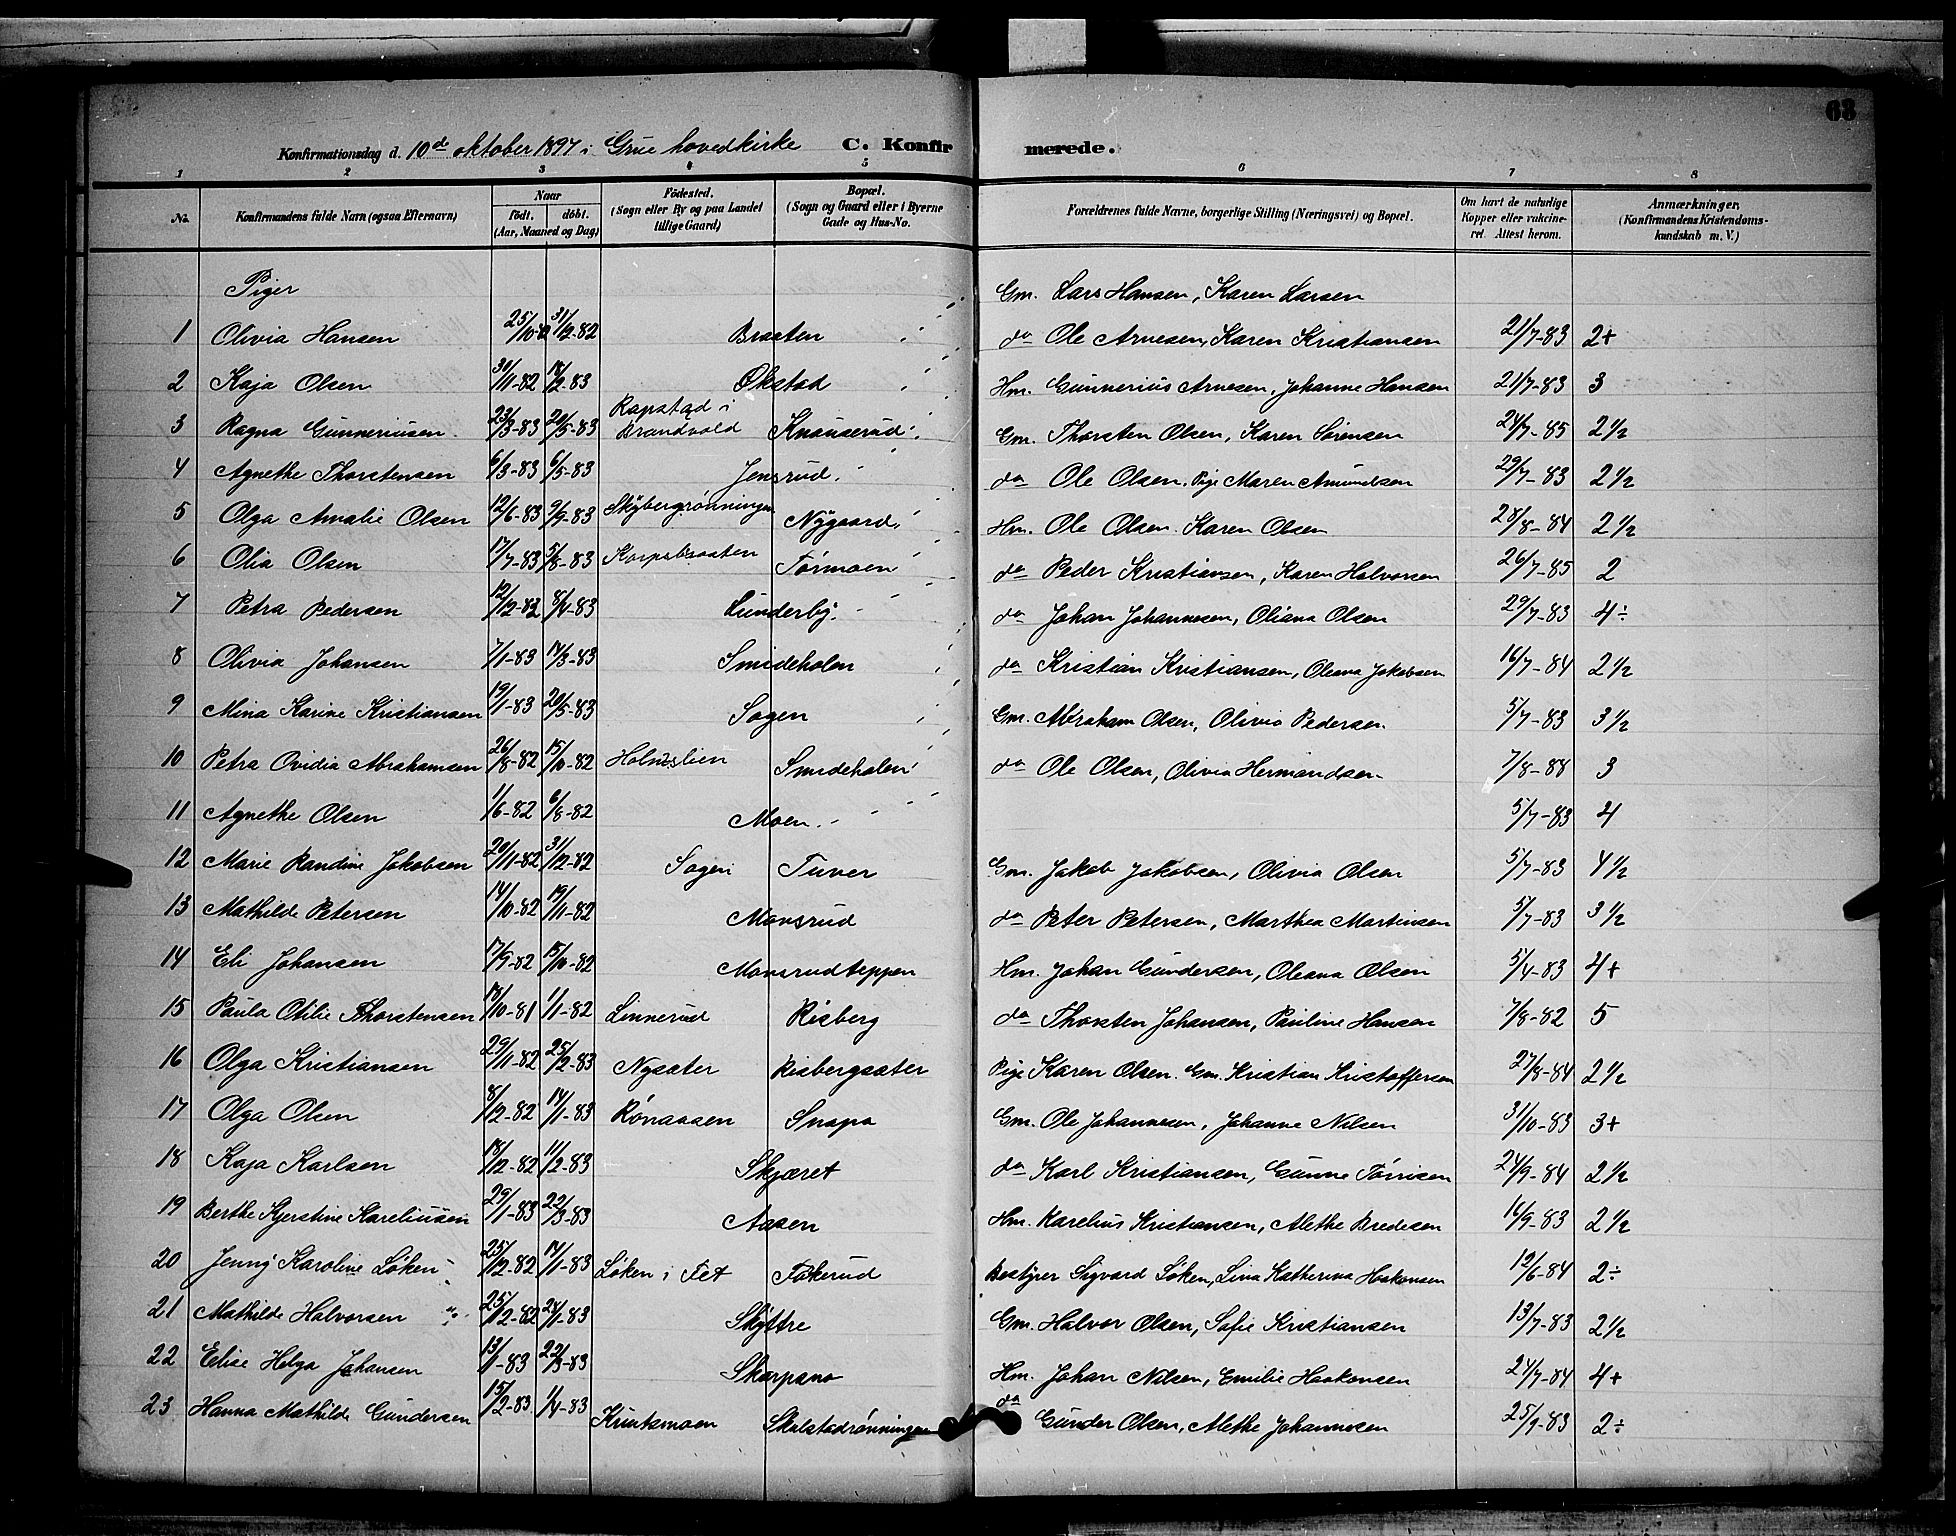 68
Konfirmationsdag d. 10de oktober 1897 i Grue hovedkirke C. Konfirmerede.
1 2 3 4 5 6 7 8
No. Konfirmandens fulde Navn (ogsaa Efternavn) Naar født. døbt. (Aar, Maaned og Dag) Födested. (Sogn eller By og paa Landet tillige Gaard) Bopæl. (Sogn og Gaard eller i Byerne Gade og Hus-No. Forældrenes fulde Navne, borgerlige Stilling (Næringsvei) og Bopæl. Om havt de naturlige Kopper eller vakcineret. Attest herom. Anmærkninger. (Konfirmandens Kristendomskundskab m. V.)
Piger Gm. Lars Hansen, Karen Larsen
1 Olivia Hansen 25/10-82 31/12-82 Braaten do Ole Arnesen, Karen Kristiansen 21/7-83 2+
2 Kaja Olsen 30/11-82 18/2-83 Økstad Hm. Gunnerius Arnesen, Johanne Hansen 21/7-83 3
3 Ragna Gunneriusen 23/3-83 20/5-83 Rapstad i Brandvold Knauserud Gm. Thorsten Olsen, Karen Sørensen 24/7-85 2 1/2
4 Agnethe Thorstensen 6/3-83 6/5-83 Jensrud do Ole Olsen. Pige Maren Amundsen 29/7-83 2 1/2
5 Olga Amalie Olsen 12/6-83 9/9-83 Skybergrønningen Nygaard Hm. Ole Olsen. Karen Olsen 28/8-84 2 1/2
6 Olia Olsen 17/7-83 5/8-83 Korpsbraaten Tørmoen do Peder Kristiansen, Karen Halvorsen 26/7-85 2
7 Petra Pedersen 12/12-82 8/4-83 Lunderby do Johan Johannesen, Oliana Olsen 29/7-83 4÷
8 Olivia Johansen 7/1-83 14/3-83 Smideholen do Kristian Kristiansen, Oleana Jakobsen 16/7-84 2 1/2
9 Mina Karine Kristiansen 19/1-83 20/5-83 Sogen Gm. Abraham Olsen, Olivia Pedersen 5/7-83 3 1/2
10 Petra Ovidia Abrahamsen 26/8-82 15/10-82 Holmslien Smideholen do Ole Olsen, Olivia Hermandsen 7/8-88 3
11 Agnethe Olsen 1/6-82 6/8-82 Moen 5/7-83 4
12 Marie Randine Jakobsen 20/11-82 31/12-82 Sogen Tuver Gm. Jakob Jakobsen, Olivia Olsen 5/7-83 4 1/2
13 Mathilde Petersen 14/10-82 19/11-82 Monsrud do Peter Petersen, Marthea Martinsen 5/7-83 3 1/2
14 Eli Johansen 17/9-82 15/10-82 Monsrudteppen Hm. Johan Gundersen, Oleana Olsen 5/4-83 4+
15 Paula Otilie Thorstensen 18/10-81 1/1-82 Linnerud Risberg do Thorsten Johansen, Pauline Hansen 7/8-82 5
16 Olga Kristiansen 29/11-82 25/2-83 Nysæter Risbergsæter Pige Karen Olsen. Gm. Kristian Kristoffersen 27/8-84 2 1/2
17 Olga Olsen 8/12-82 14/1-83 Rønaasen Snapa Gm. Ole Johannesen, Johanne Nilsen 31/10-83 3+
18 Kaja Karlsen 18/12-82 11/2-83 Skjæret do Karl Kristiansen, Gunne Tørrisen 24/9-84 2 1/2
19 Berthe Kjerstine Kareliusen 29/1-83 22/3-83 Aasen Hm. Karelius Kristiansen, Alethe Bredesen 16/9-83 2 1/2
20 Jenny Karoline Løken 25/12-82 14/1-83 Løken i Fet Fokerud Bestyrer Sigvard Løken, Lina Katherina Haakonsen 12/6-84 2÷
21 Mathilde Halvorsen 25/12-82 28/1-83 Skyttre Gm. Halvor Olsen, Sofie Kristiansen 13/7-83 2 1/2
22 Elise Helga Johansen 13/1-83 22/3-83 Skarpano Hm. Johan Nilsen, Emilie Haakonsen 24/7-84 4+
23 Hanna Mathilde Gundersen 15/2-83 1/4-83 Kruutsmoen Skulstadrønningen do Gunder Olsen, Alethe Johannesen 25/9-83 2÷